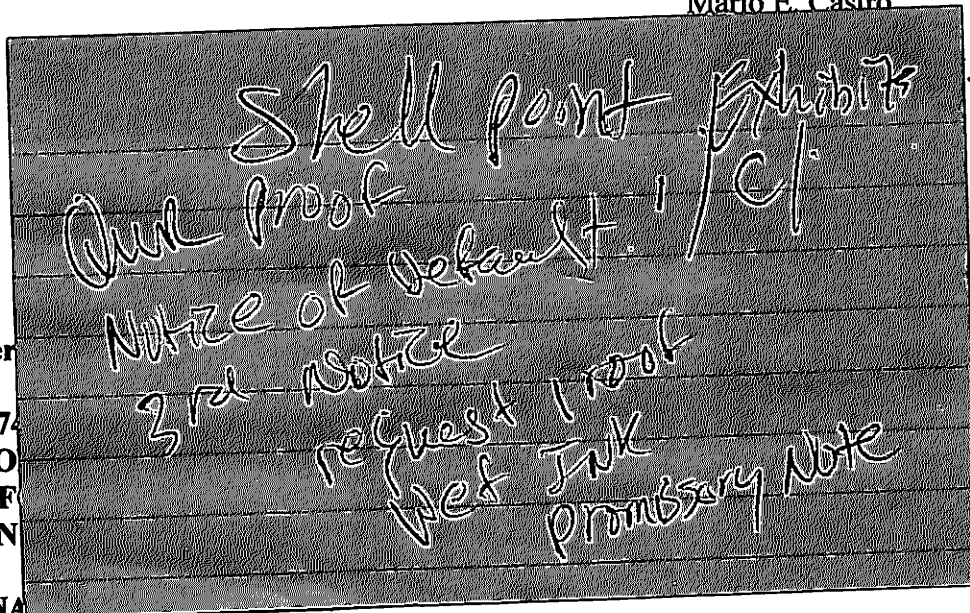 Mario E. Castro
Shell Point Exhibit
C1
Our Proof
Notice of Default
3rd Notice
request Proof
Wet INK
promissory Note
er
74
O
F
N
NA